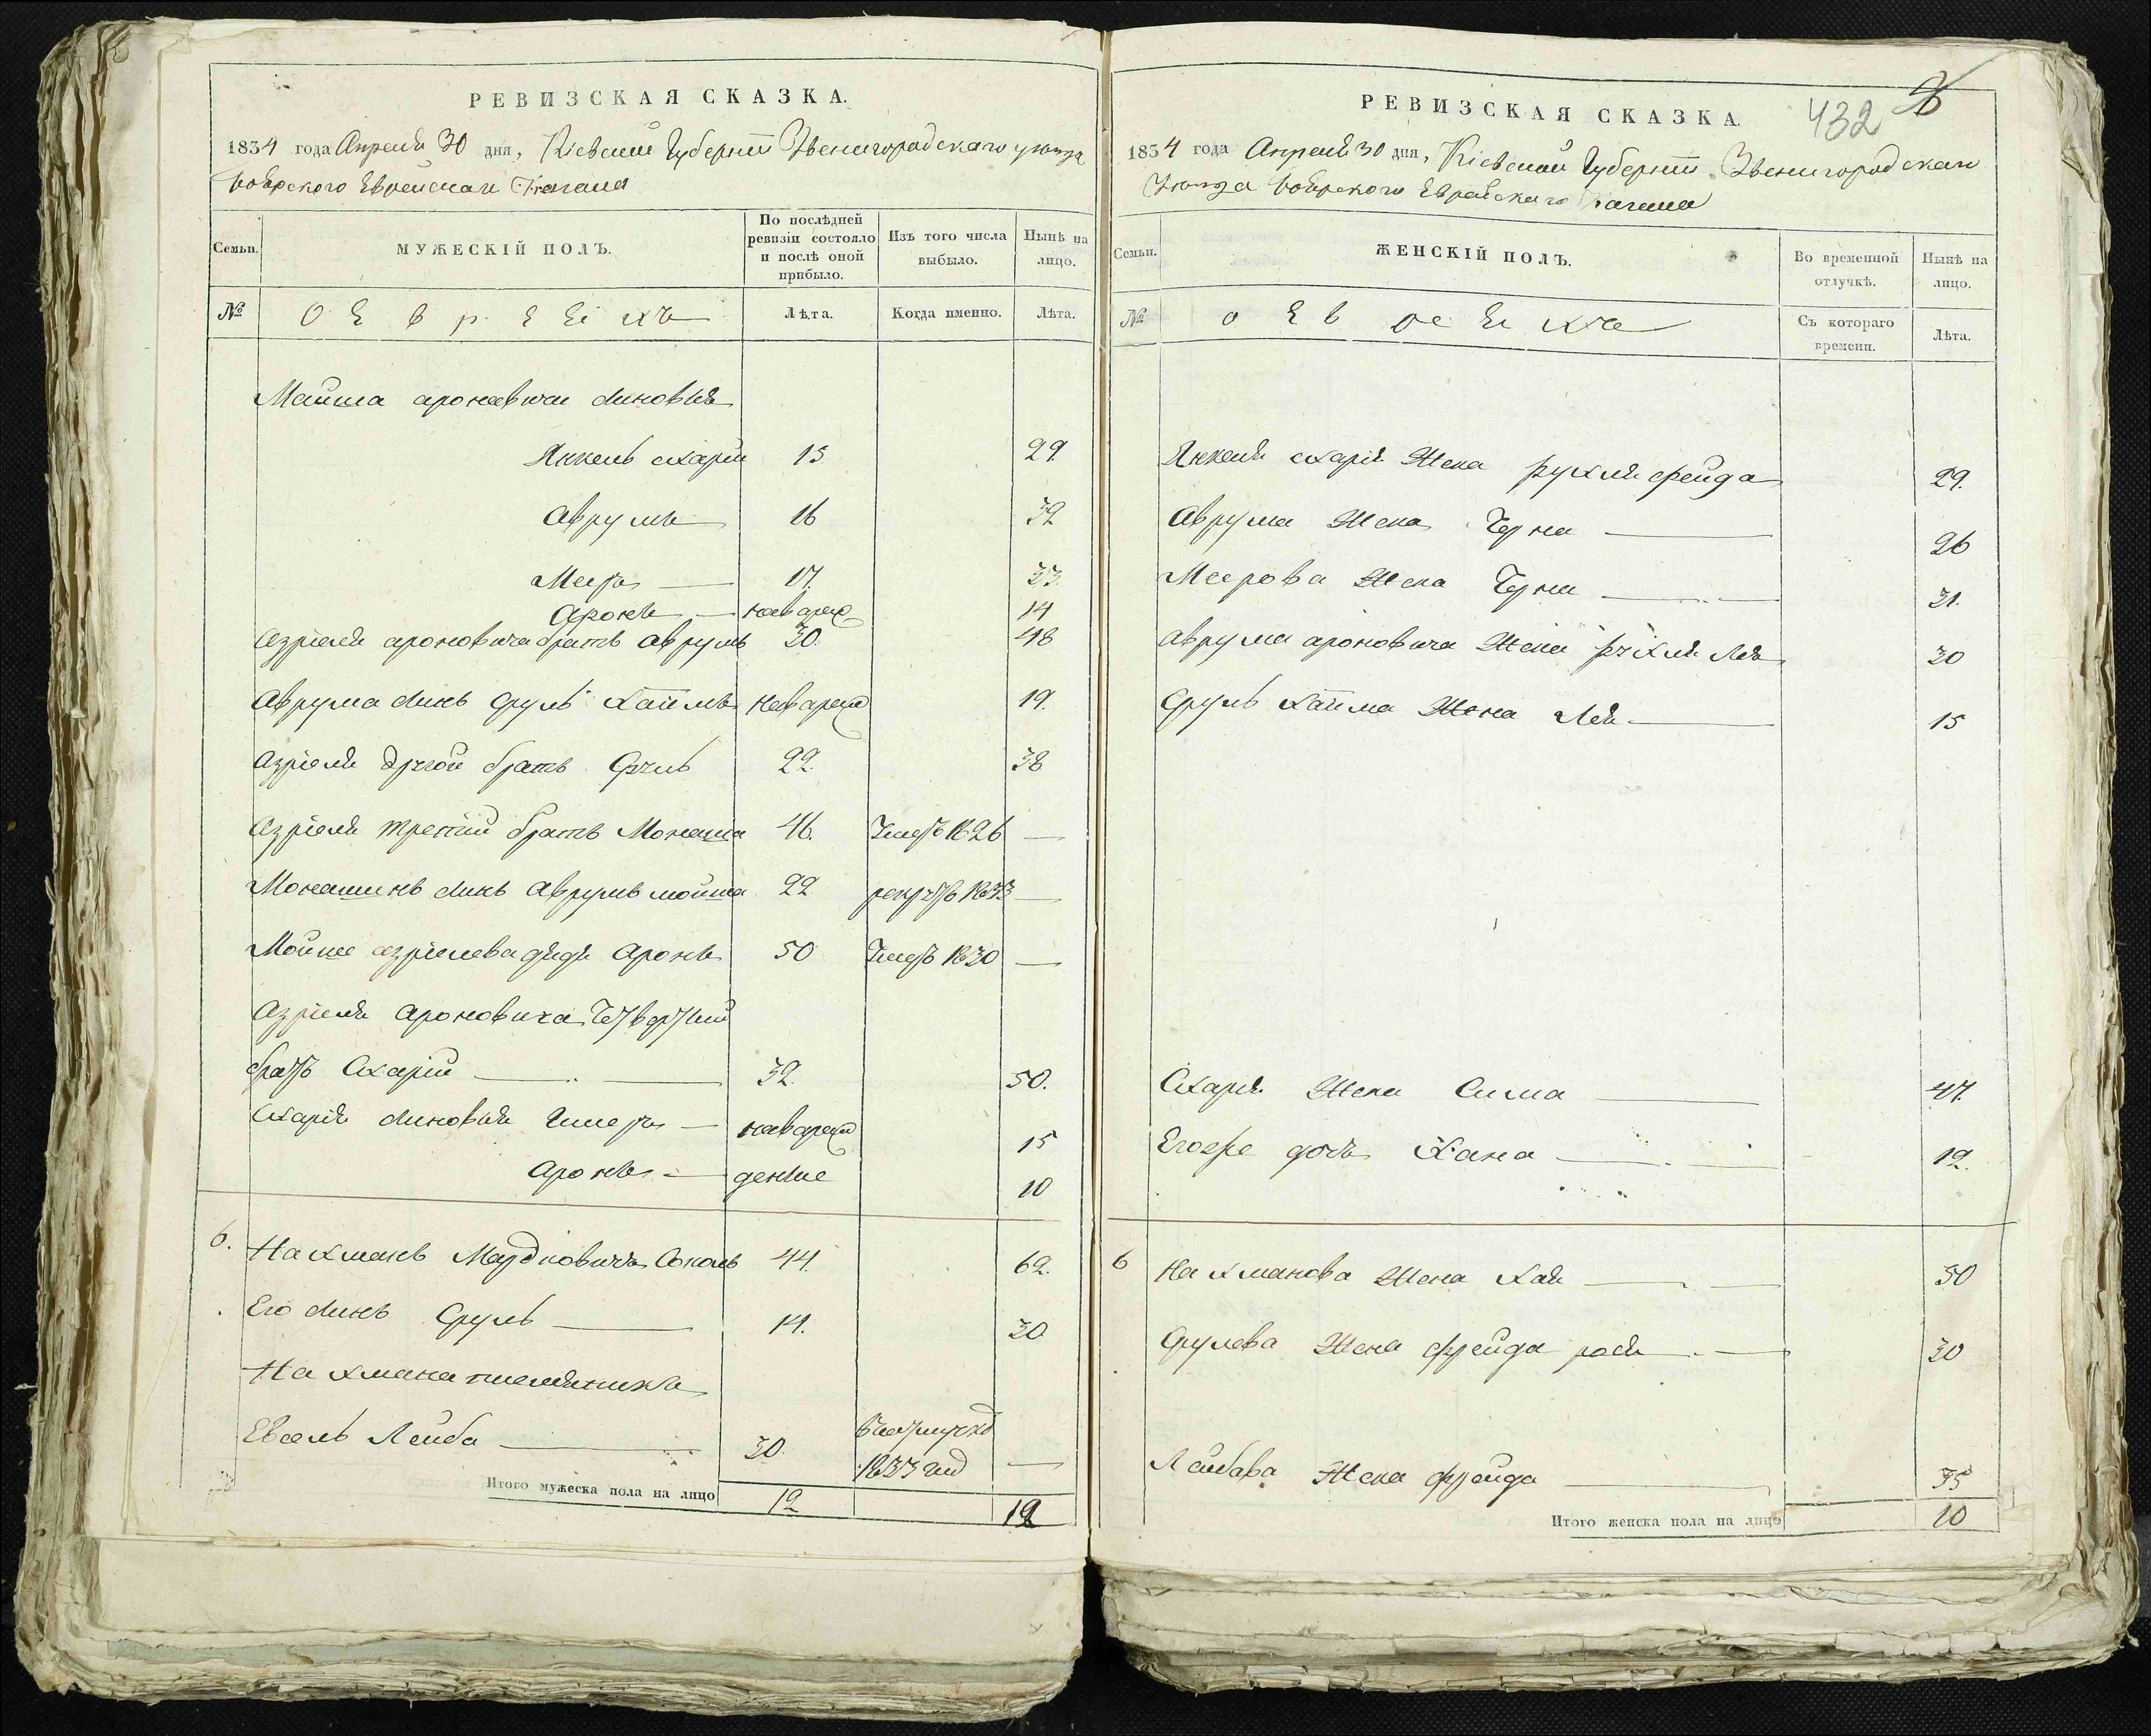 РЕВИЗСКАЯ СКАЗКА.
1834 года Апреля 30 дня, Кіевской Губерніи Звенигородскаго уезда
Боярского Еврейскаго Кагала
Семьи.
МУЖЕСКІЙ ПОЛЪ.
По послѣдней ревизіи состояло и послѣ оной прибыло.
Изъ того числа выбыло.
Нынѣ на лицо.
№
О Е в р е е хъ
Лѣта.
Когда именно.
Лѣта.
Мойша ароновича синовья
Янкель схарія 15 29.
Аврумъ 16 32
Меиръ 17. 33.
Аронъ новорож 14
Азріеля ароновича братъ аврумъ 30. 48
Аврума синъ Сруль Хаимъ новорожд 19.
Азріеля другой братъ Сруль 22. 38
Азріеля третій братъ Монаша 46. Умеръ 1826 —
Монашинъ синъ Аврумъ мойша 22 рекрутъ 1833 —
Мойше азріелева дядя Аронъ 50 Умеръ 1830 —
Азріеля Ароновича Четвертий
братъ Схарія 32. 50.
Схарія синовья Ицтеръ новорожд 15
Аронъ денные 10
6. Нахманъ Мардковичъ Соколъ 44. 62.
Его синъ Сруль 14. 30
Нахмана племянникъ
Евсель Лейба 30. 1833 год —
Итого мужеска пола на лицо 12 12
РЕВИЗСКАЯ СКАЗКА.
432
1834 года Апреля 30 дня, Кіевской Губерніи Звенигородскаго
Уезда Боярского Еврейскаго Кагала
Семьи.
ЖЕНСКІЙ ПОЛЪ.
Во временной отлучкѣ.
Нынѣ на лицо.
№
о Е в ре е хъ
Съ котораго времени.
Лѣта.
Янкеля схарія Жена рухля фейда 29.
Аврума Жена Черна 26
Меерова Жена Черна 31.
Аврума ароновича Жена рухля Лея 30
Сруль хаима Жена Лея 15
Схарія Жена Сима 47.
Егоже дочь Хана 12.
6 Нахманова Жена Хая 50
Срулева Жена фрейда рася 30
Лейбова Жена фрейда 35
Итого женска пола на лицо 10